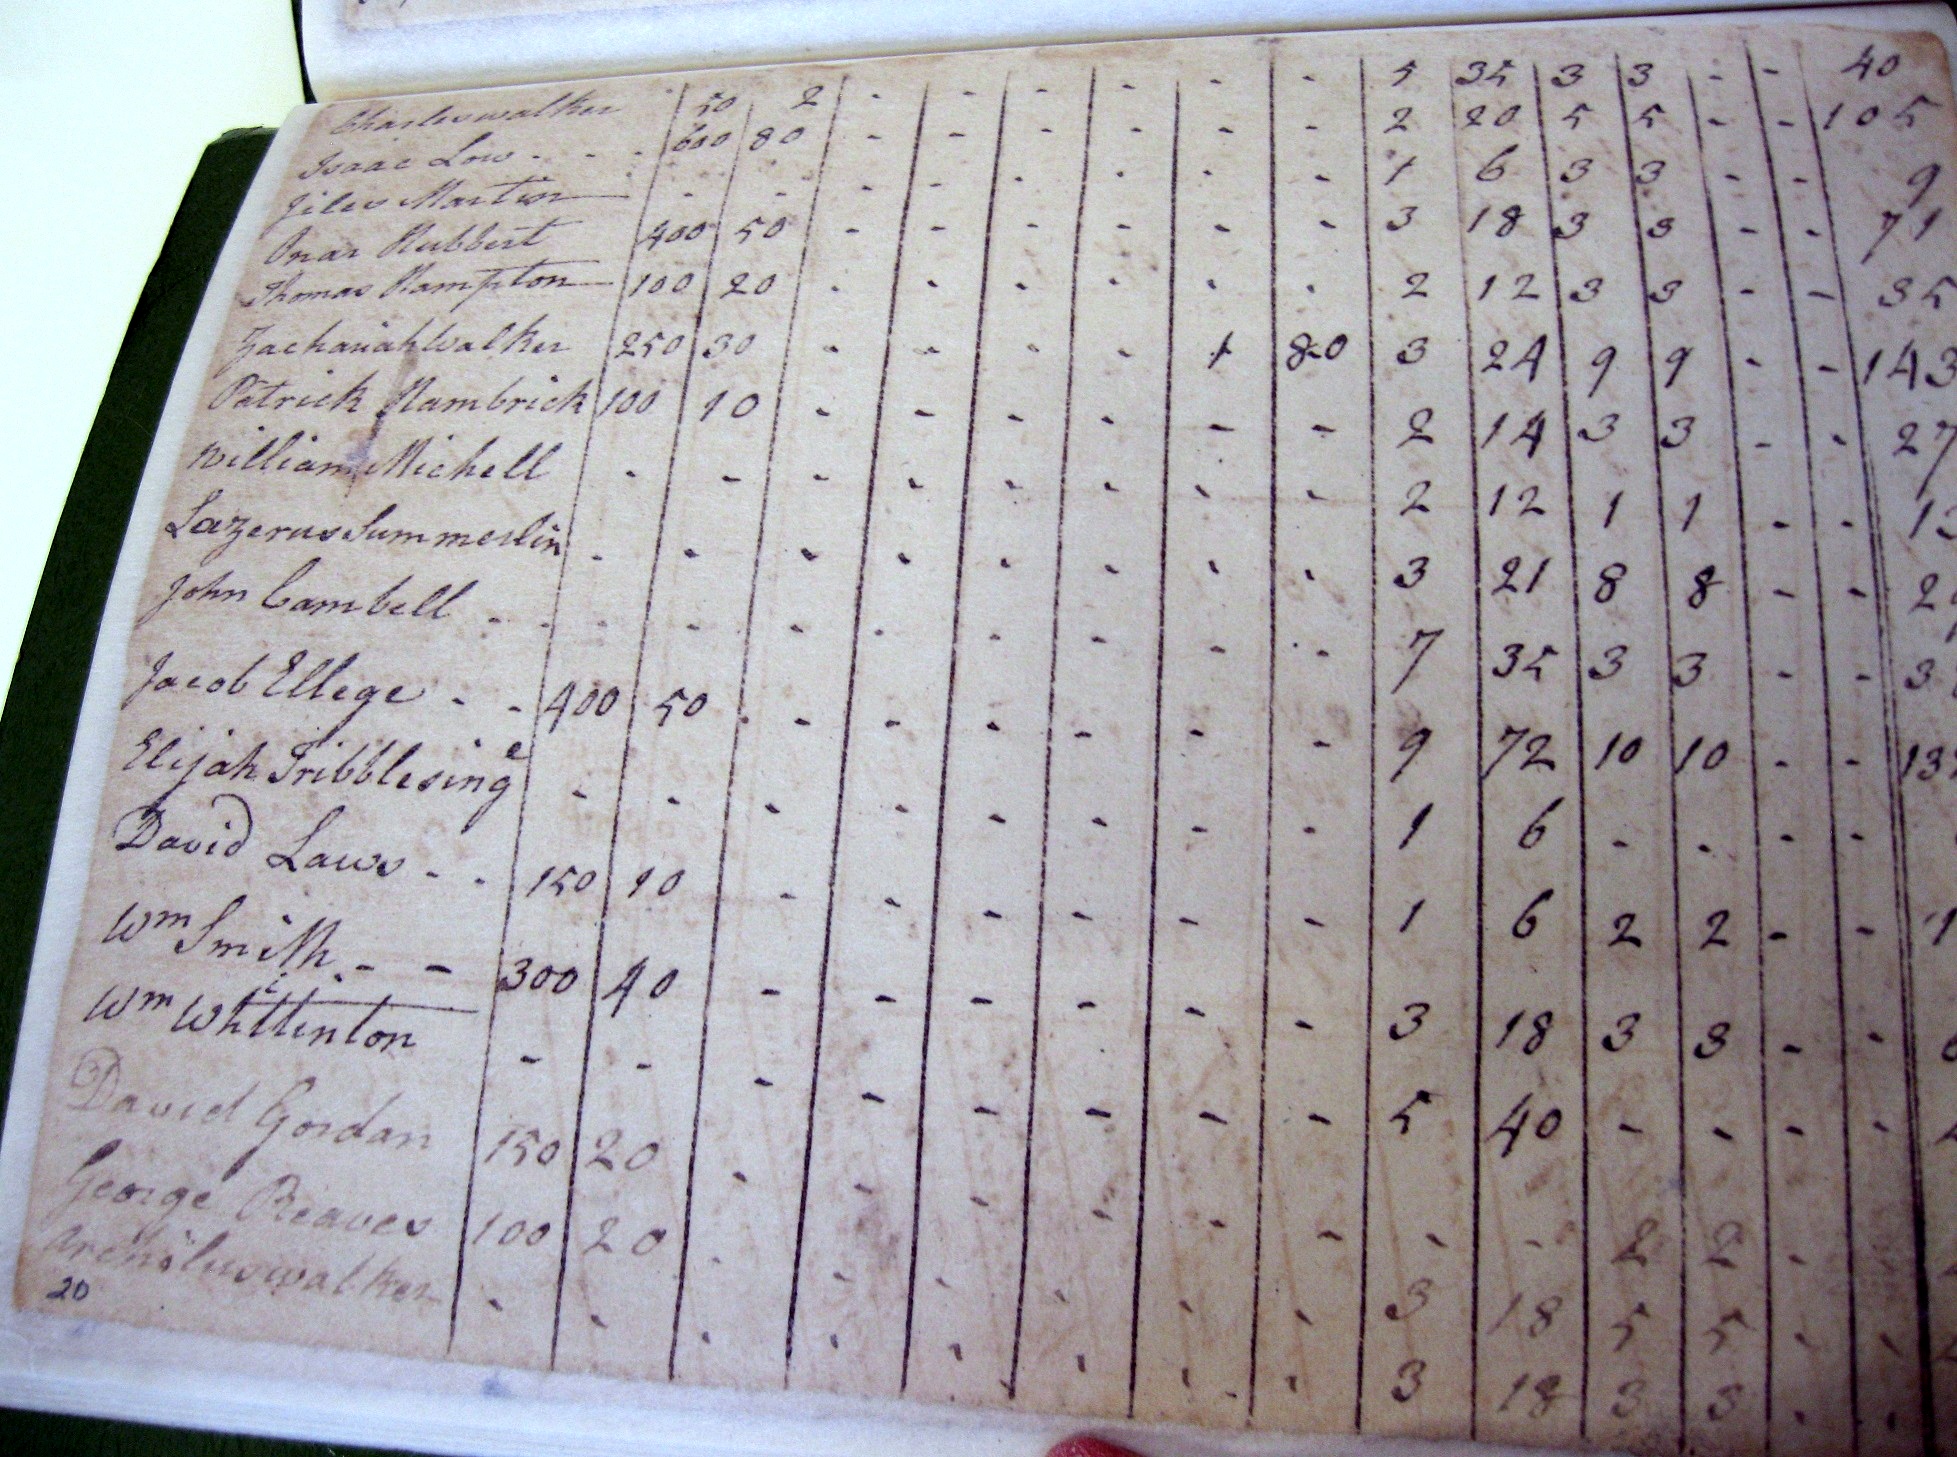 Charles walker 50 2 - - - - - - 5 35 3 3 - - 40
Isaac Low - - - 600 80 - - - - - - 2 20 5 5 - - 105
Jiles Martin - - - - - - - - 1 6 3 3 - - 9
Hubbert 400 50 - - - - - - 3 18 3 3 - - 71
Thomas Hampton 100 20 - - - - - - 2 12 3 3 - - 35
Zachariah Walker 250 30 - - - - 1 80 3 24 9 9 - - 143
Patrick Hambrick 100 10 - - - - - - 2 14 3 3 - - 27
William Michell - - - - - - - - 2 12 1 1 - - 13
Lazerus Summerlin - - - - - - - - 3 21 8 8 - - 2
John Cambell - - - - - - - - - - 7 35 3 3 - - 3
Jacob Ellege - - 400 50 - - - - - - 9 72 10 10 - - 13
Elijah Tribblesinge - - - - - - - - 1 6 - - - -
David Laws - - 150 10 - - - - - - 1 6 2 2 - - 1
Wm Smith - - 300 40 - - - - - - 3 18 3 3 - - 6
Wm Whittinton - - - - - - - - 5 40 - - - -
David Gordan 150 20 - - - - - - - - 2 2 -
George Reaves 100 20 - - - - - - 3 18 5 5 - -
walker - - - - - - - - 3 18 3 3 - -
20